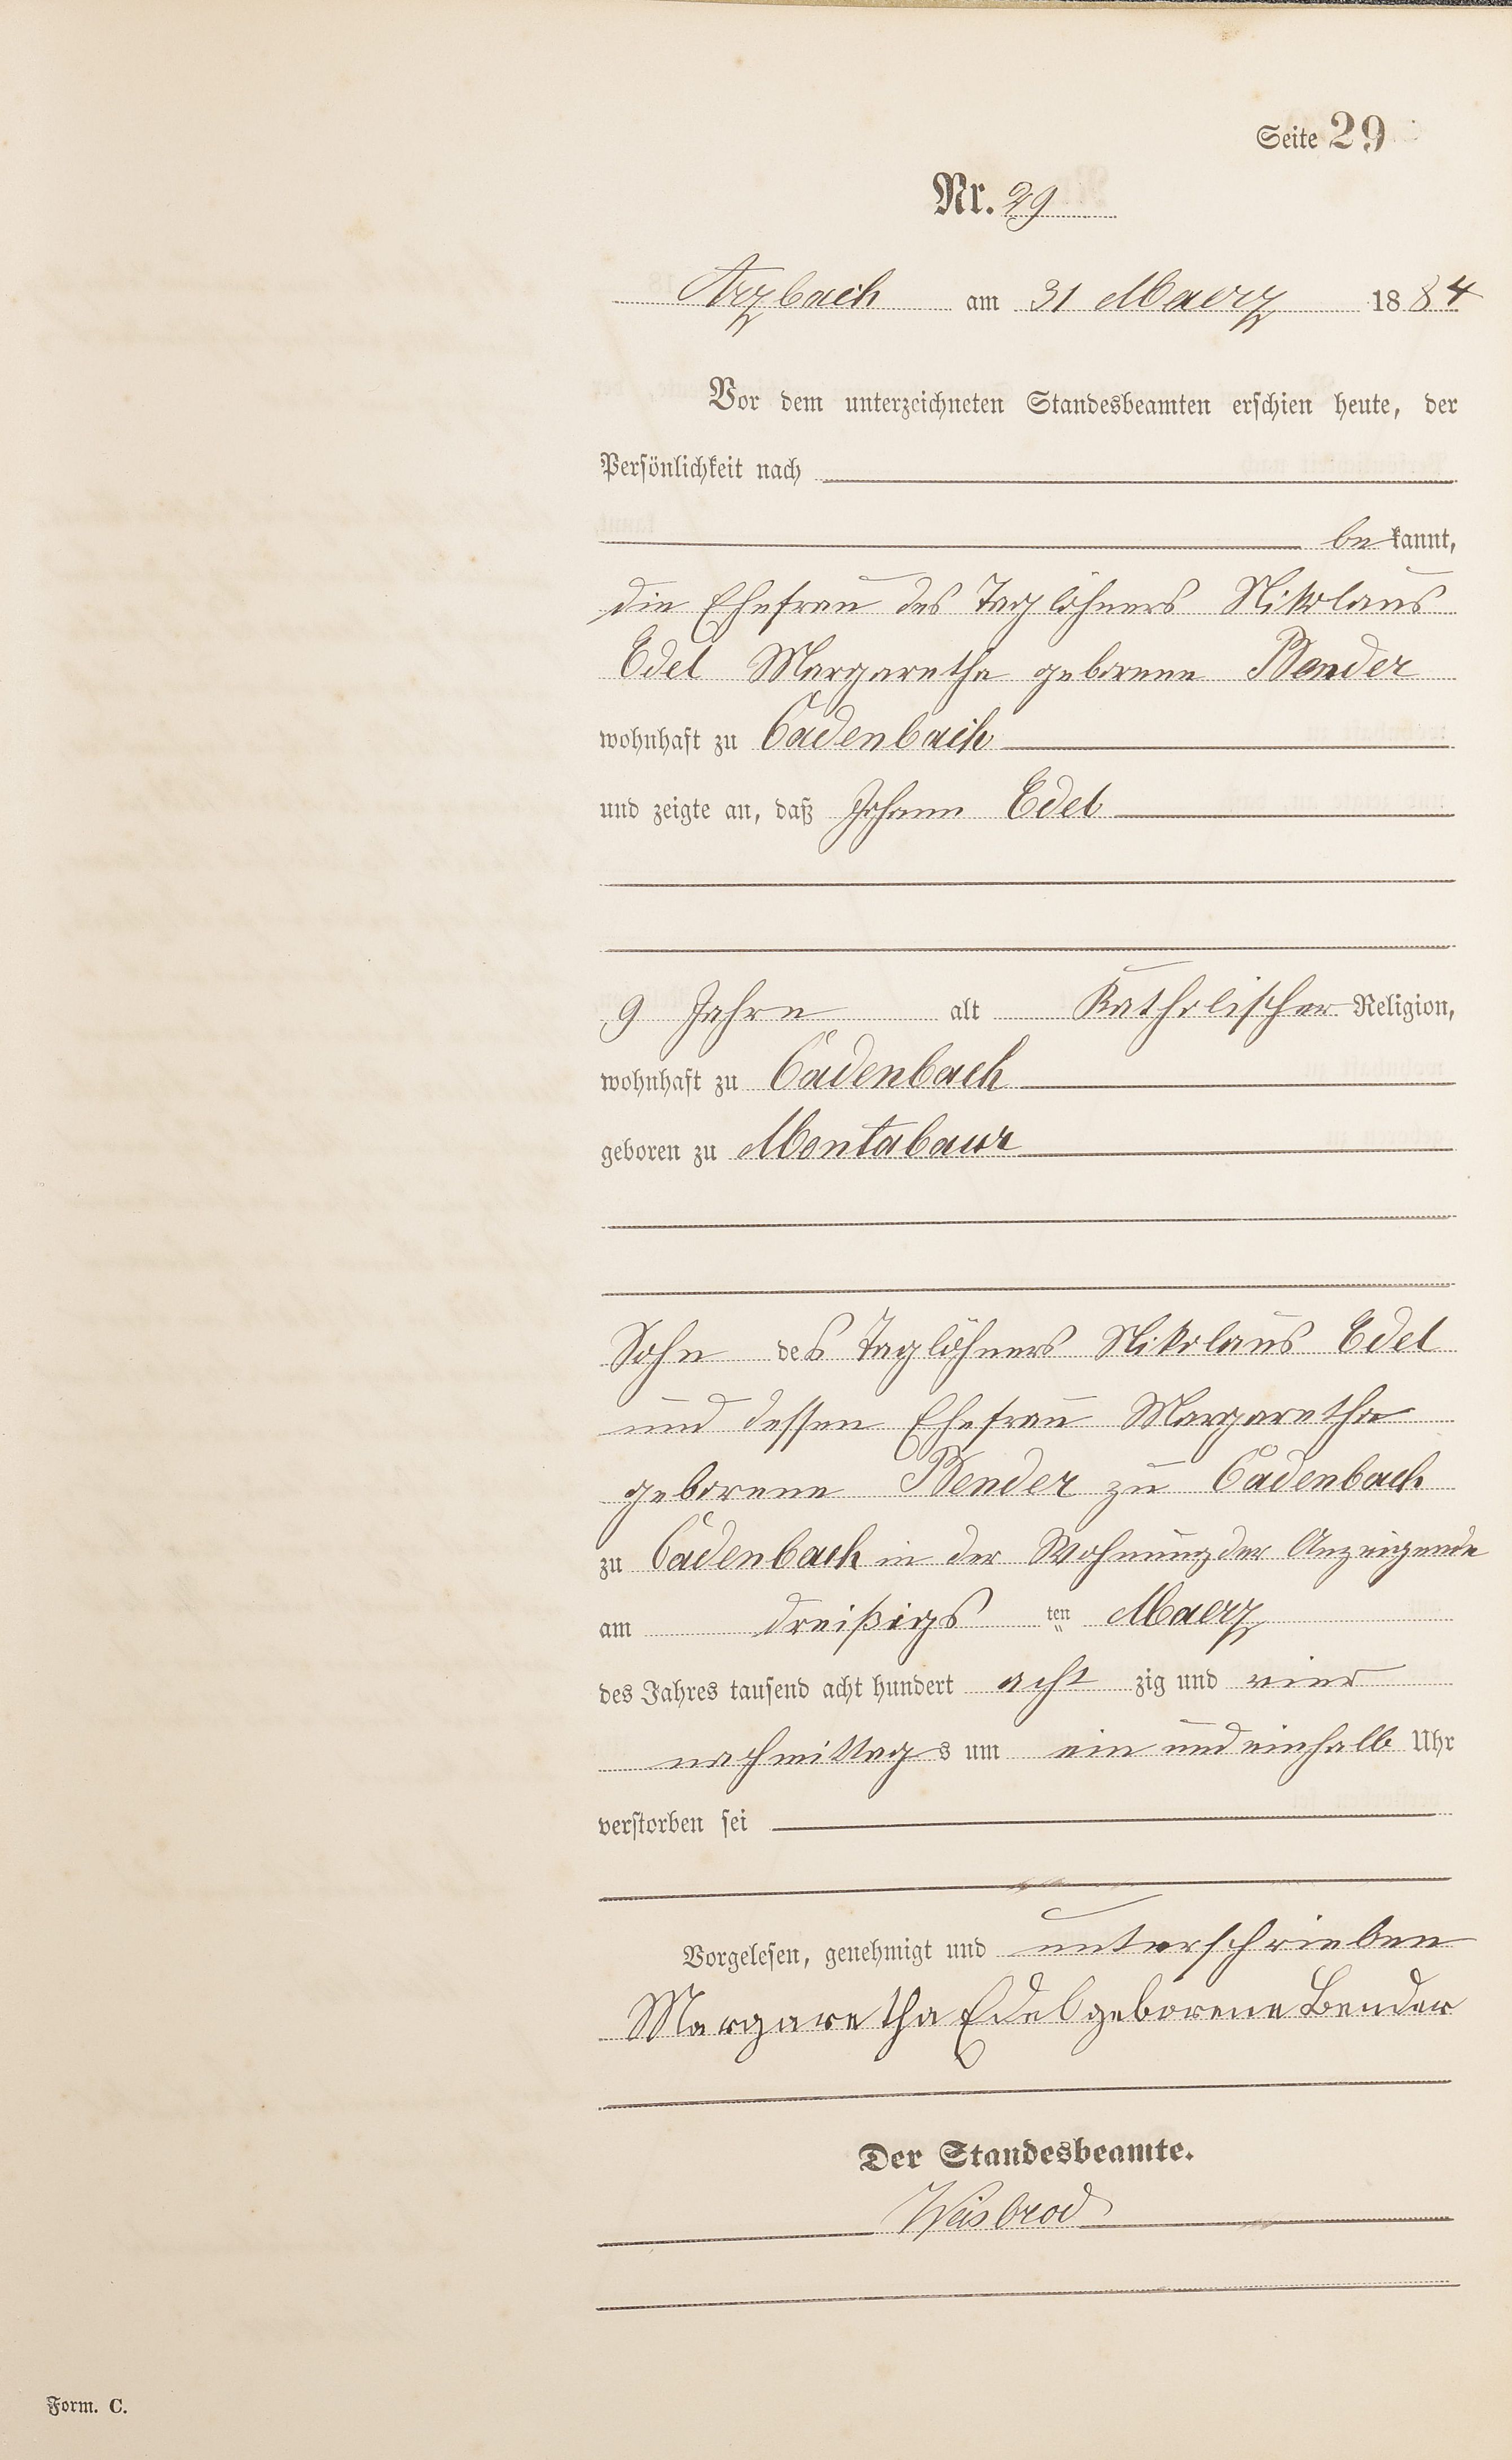 Seite 29
Nr. 29
Arzbach am 31 Maerz 1884
Vor dem unterzeichneten Standesbeamten erschien heute, der
Persönlichkeit nach
bekannt,
die Ehefrau des Taglöhners Nikolaus
Edel Margaretha geborene Bender
wohnhaft zu Cadenbach
und zeigte an, daß Johann Edel
9 Jahre alt Katholischer Religion,
wohnhaft zu Cadenbach
geboren zu Montabaur
Sohn des Taglöhners Nikolaus Edel
und dessen Ehefrau Margaretha
geborene Bender zu Cadenbach
zu Cadenbach in der Wohnung der Anzeigende
am dreißigsten Maerz
des Jahres tausend acht hundert achtzig und vier
nachmittags um ein und einhalb Uhr
verstorben sei
Vorgelesen, genehmigt und unterschrieben
Margaretha Edel geborene Bender
Der Standesbeamte.
Weisbrod
Form. C.